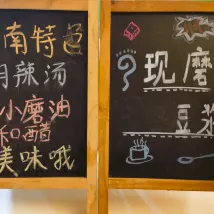 南特色
胡辣汤
小磨油
和醋
美味哦
现磨
豆浆